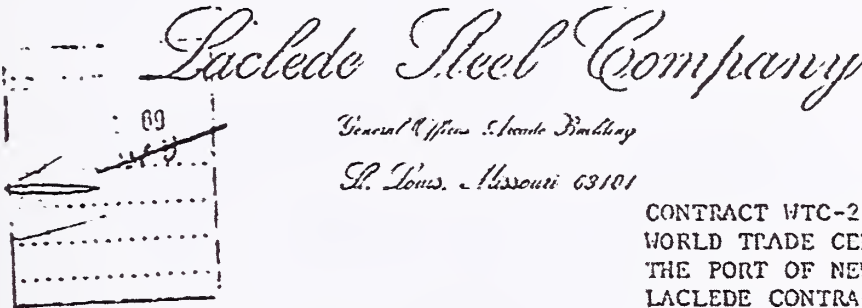 Laclede Steel Company
General Offices Arcade Building
St. Louis, Missouri 63101
CONTRACT WTC-2
WORLD TRADE CE
THE PORT OF NE
LACLEDE CONTRA